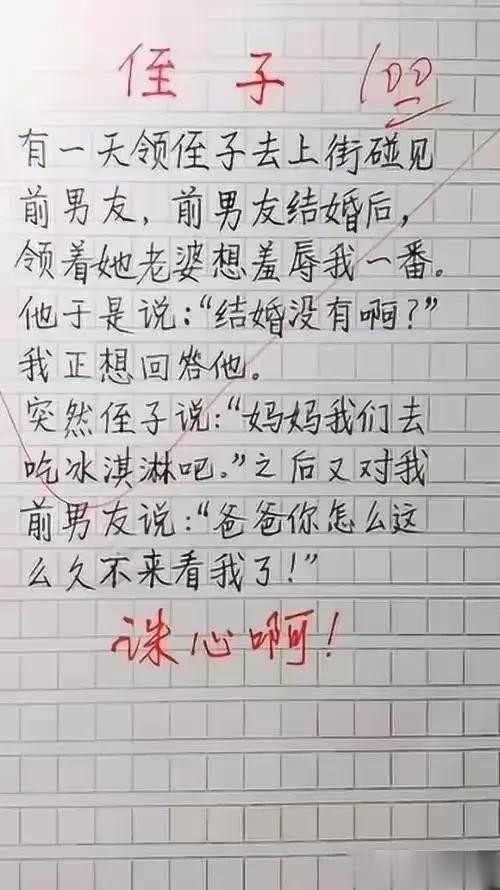 侄子 100
有一天领侄子去上街碰见
前男友，前男友结婚后，
领着她老婆想羞辱我一番。
他于是说：“结婚没有啊？”
我正想回答他。
突然侄子说：“妈妈我们去
吃冰淇淋吧。”之后又对我
前男友说：“爸爸你怎么这
么久不来看我了！”
诛心啊！